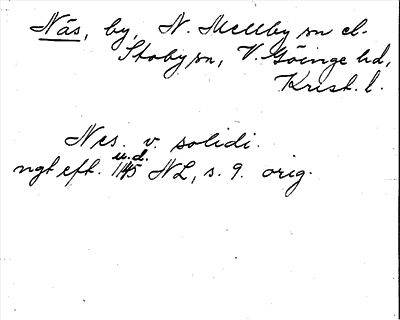 Näs, by, N. Mellby sn el.
Stoby sn, V. Göinge hd,
Krist. l.
Nes. v. solidi.
u.d.
ngt eft. 1145 NL, s. 9. orig.